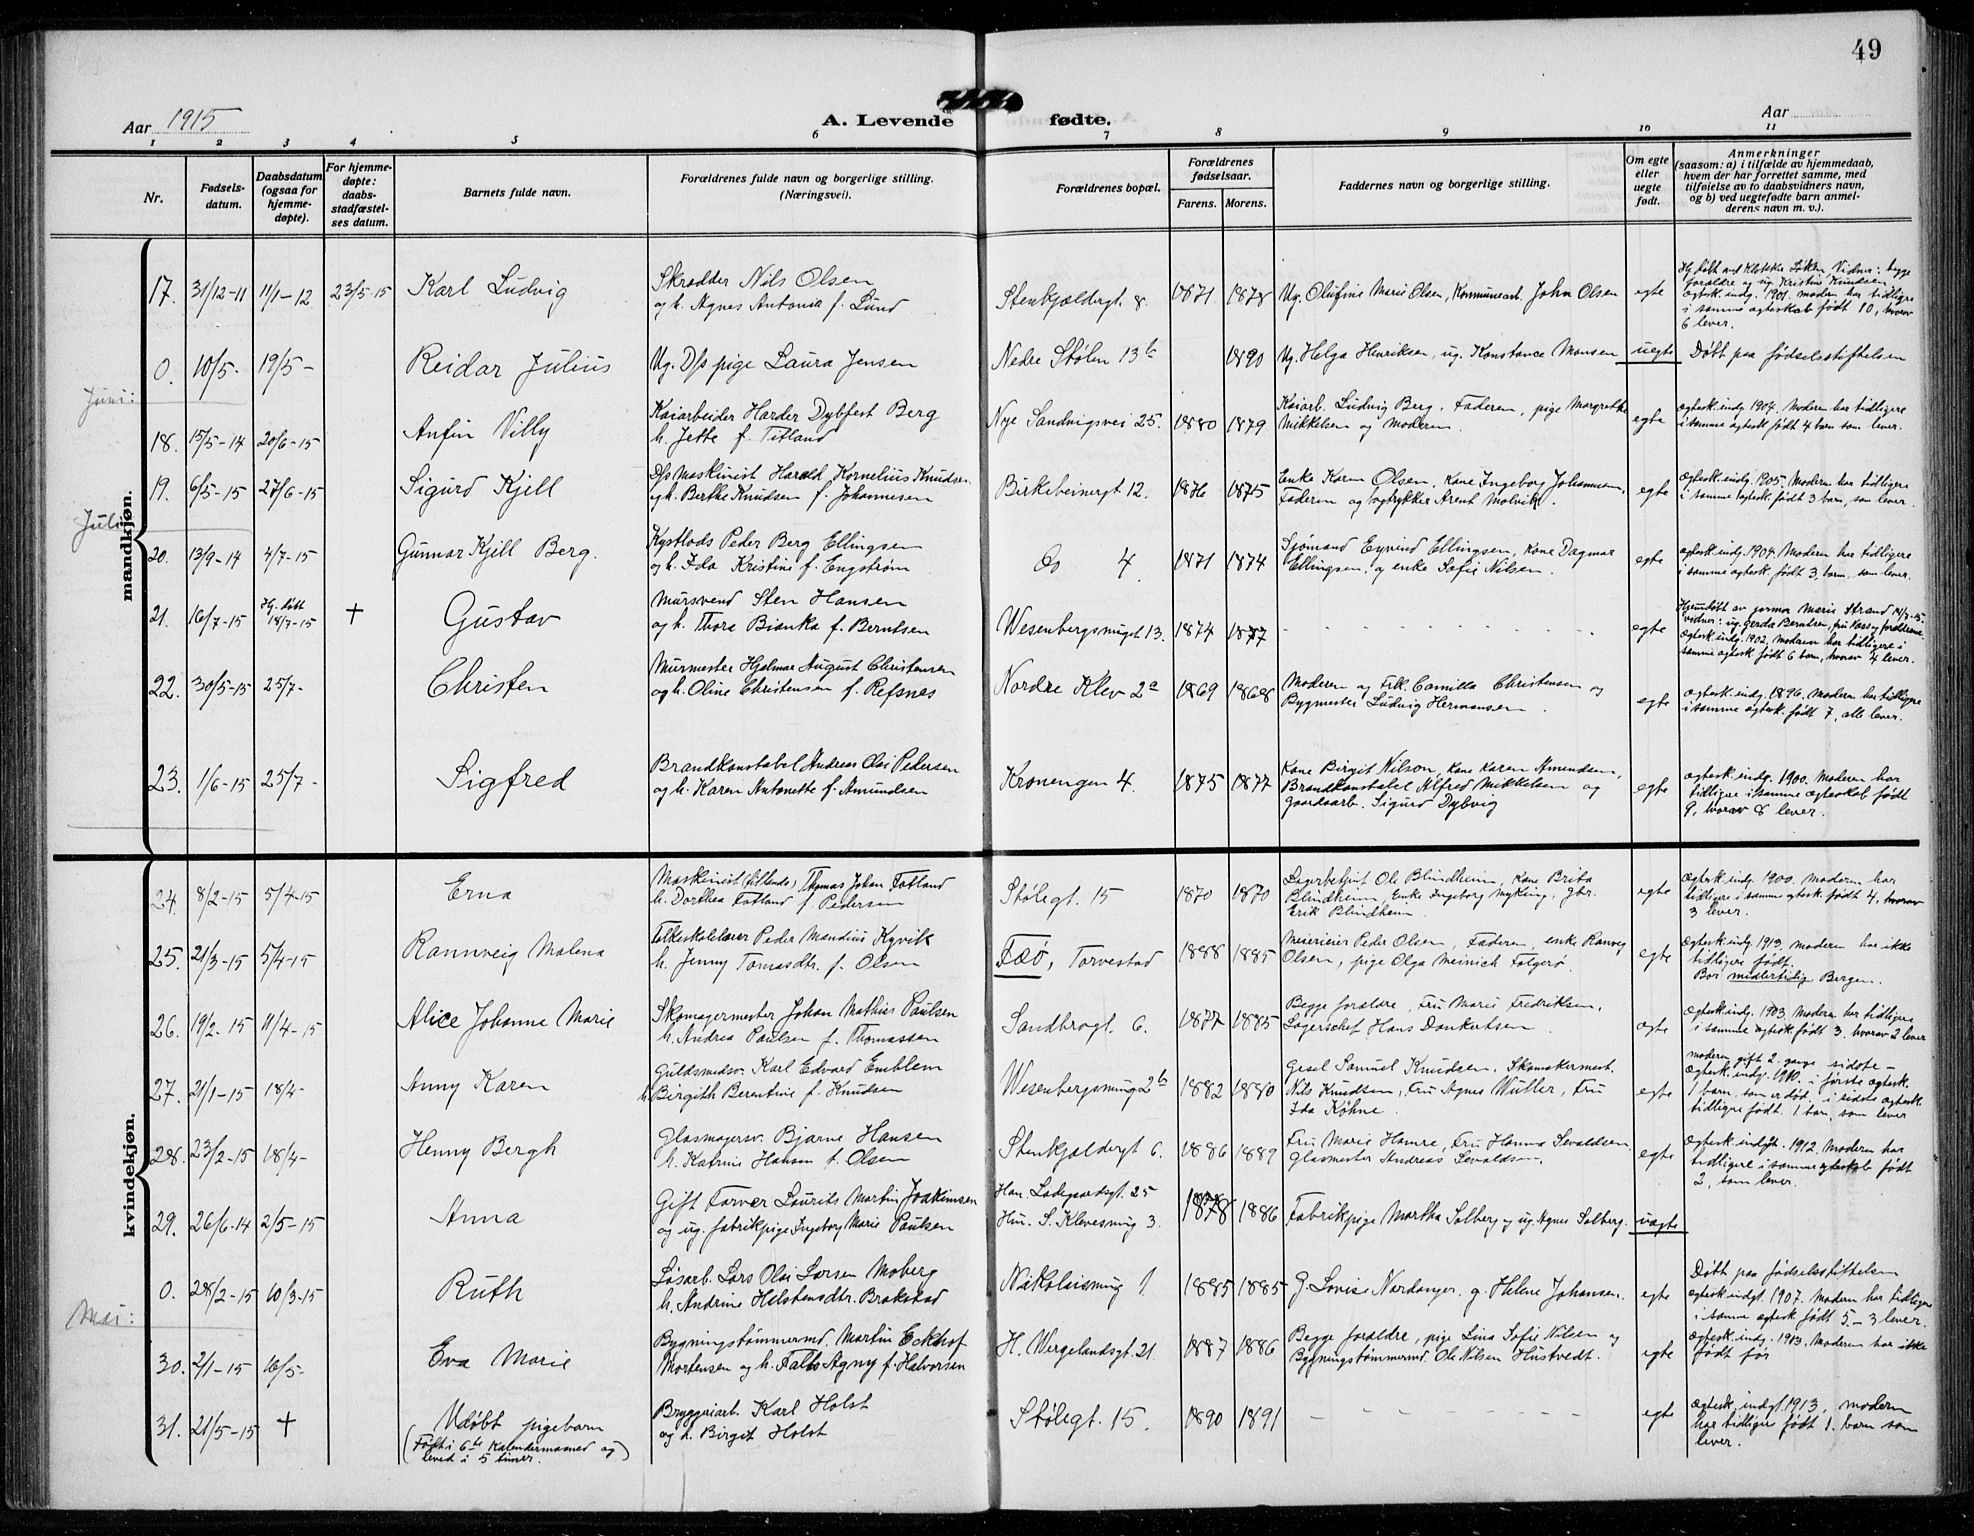 49
Aar 1915
A. Levende fødte.
Aar
1 2 3 4 5 6 7 8 9 10 11
Nr.
Fødsels-
datum.
Daabsdatum
(ogsaa for
hjemme-
døpte).
For hjemme-
døpte:
daabs-
stadfæstel-
ses datum.
Barnets fulde navn.
Forældrenes fulde navn og borgerlige stilling.
(Næringsvei).
Forældrenes bopæl.
Forældrenes
fødselsaar.
Farens. Morens.
Faddernes navn og borgerlige stilling.
Om egte
eller
uegte
født.
Anmerkninger
(saasom: a) i tilfælde av hjemmedaab,
hvem der har forrettet samme, med
tilføielse av to daabsvidners navn,
og b) ved uegtefødte barn anmel-
derens navn m. v.).
mandkjøn.
17. 31/12-11 11/1-12 23/5-15 Karl Ludvig
Skrædder Nils Olsen
og h. Agnes Antonia f. Lund
Stenkjeldergt. 8. 1871 1878
Ug. Olufine Marie Olsen, Kommunearb. John Olsen
egte
Hj. døbt ved Klokker Løken, Vidner: begge
forældre og ug. Kristine Knudsen
Ægtesk. indg. 1901. Modern har tidligere
i samme ægteskab født 10, hvorav
6 lever.
0. 10/5- 19/5- Reidar Julius
Ug. D/s pige Laura Jensen
Nedre Stølen 13b 1890
Ug. Helga Henriksen, ug. Konstance Monsen
uegte
Døbt paa fødselsstiftelsen
Juni:
18. 15/5-14 20/6-15 Anfin Villy
Kaiarbeider Harder Dybfest Berg
h. Jette f. Titland
Nye Sandvigsvei 25. 1880 1879
Kaiarb. Ludvig Berg. Faderen, pige Margrethe
Mikkelsen og moderen.
egte
Ægtesk. indg. 1904. Moderen har tidligere
i samme ægtesk. født 4 barn som lever.
19. 6/5-15 27/6-15 Sigurd Kjell
D/s Maskinist Harald Kornelius Knudsen
og h. Berthe Knudsen f. Johannesen
Birkebeinergt 12. 1876 1875
Enke Karen Olsen, Kone Ingeborg Johannesen,
Faderen og bogtrykker Arent Molvik.
egte
Ægtesk. indg. 1905. Moderen har tidligere
i samme ægtesk. født 3 barn, som lever.
Juli
20. 13/9-14 4/7-15 Gunnar Kjell Berg.
Kystlods Peder Berg Ellingsen
og h. Ida Kristine f. Engstrøm
4 1871 1874
Sjømand Eyvind Ellingsen, Kone Dagmar
Ellingsen, og enke Sofie Nilsen.
egte
Ægtesk. indg. 1904. Moderen har tidligere
i samme ægtesk. født 3, barn, som lever.
21. 16/7-15 Hj. døbt
18/7-15 + Gustav
Mursvend Sten Hansen
og h. Thora Bianka f. Berntsen
Wesenbergsmuget 13. 1874 1877
egte
Hjemdøbt av jormor Marie Strand 18/7-15.
Vidner: ug. Gerda Berntsen, og forældrene
Ægtesk. indg. 1902, modern har tidligere i
samme ægtesk. født 6 barn, hvorav 4 lever.
22. 30/5-15 25/7- Christen
Murmester Hjalmar August Christensen
og h. Oline Christensen f. Refsnes
Nordre Klev 2a 1869 1868
Moderen og Frk. Camilla Christensen og
Bygmester Ludvig Hermansen.
egte
Ægtesk. indg. 1896. Modern har tidligere
i samme ægtesk. født 7, alle lever.
23. 1/6-15 25/7- Sigfred
Brandkonstabel Andreas Olai Pedersen
og h. Karen Antonette f. Amundsen
Kronengen 4. 1875 1877
Kone Birgit Nilson, kone Karen Amundsen,
Brandkonstabel Alfred Mikkelsen og
gaardsarb. Sigurd Dybvig
egte
Ægtesk. indg. 1900. Modern har
tidligere i samme ægteskab født
9, hvorav 8 lever.
kvindekjøn.
24. 8/2-15 5/4-15 Erna
Maskinist (fritlands) Thomas Johan Totland
h. Dorthea Totland f. Pedersen
Stølegt. 15 1870 1870
Lagerbetjent Ole Blindheim, Kone Brita
Blindheim, Enke Ingeborg Myking, gbr.
Erik Blindheim
egte
Ægtesk. indg. 1900. moderen har
tidligere i samme ægtesk. født 4, hvorav
3 lever.
25. 21/3-15 5/4-15 Rannveig Malena
Folkeskolelærer Peder Mandius Kyvik
h. Jenny Tomasdtr. f. Olsen
Fæø, Torvestad 1888 1885
Meierieier Peder Olsen, Faderen, enke Ranveg
Olsen, pige Olga Meinich Folgerø.
egte
Ægtesk. indg. 1913. Modern har ikke
tidligere født.
Bor midlertidig Bergen.
26. 19/2-15 11/4-15 Alice Johanne Marie
Skomagermester Johan Mathias Paulsen
h. Andrea Paulsen f. Thomassen
Sandbrogt. 6. 1877 1885
Begge forældre, Fru Marie Fredriksen,
Lagerschef Hans Dankertsen.
egte
Ægtesk. indg. 1903. Modern har tidligere
i samme ægtesk. født 3. hvorav 2 lever
27. 21/1-15 18/4- Anny Karen
Guldsmedsv. Karl Edvard Emblem
h. Birgith Berentine f. Knudsen
Wesenbergsmug 2b 1882 1880
Gesel Samuel Knudsen, Skomakermest.
Nils Knudsen, Fru Agnes Müller, Fru
Ida Köhne.
egte
modern gift 2. gange sidste -
Ægtesk. indg. 1910. i første ægtesk.
1 barn, som er død, i sidste ægtesk.
tidligere født. 1 barn, som lever
28. 23/2-15 18/4- Henny Bergh
Glasmagersv. Bjarne Hansen
h. Katrine Hansen f. Olsen
Stenkjeldergt 6. 1886 1889
Fru Marie Hamre, Fru Hanna Sevaldsen,
Glasmester Andreas Sevaldsen.
egte
Ægtesk. indgt. 1912. Modern har
tidligere i samme ægteskab født
2, som lever.
29. 26/6-14 2/5-15 Anna
Gift Farver Laurits Martin Joakimsen
og ug. fabrikpige Ingeborg Marie Paulsen
Han. Ladegaardsgt. 25
Hun. S. Klevesmug 3. 1878 1886
Fabrikpige Martha Solberg og ug. Agnes Solberg.
uegte
0. 28/2-15 10/3-15 Ruth
Løsarb. Lars Olai Larsen Moberg
h. Andrine Helstensdtr. Brakstad
Nikolaismug 1 1885 1885
G. Lovise Nordanger. g. Helene Johansen.
egte
Døbt paa fødselsstiftelsen
Ægtesk. indgt. 1907. Modern har tidligere
i samme ægtesk født 5 - 3 lever.
Mai:
30. 2/1-15 16/5- Eva Marie
Bygningstømmermd. Martin Eckhof
Mortensen og h. Falb Agny f. Halvorsen
H. Wergelandsgt. 21. 1887 1886
Begge forældre, pige Lina Sofie Nilsen og
Bygningstømmermd. Ole Nilsen Hustvedt.
egte
Ægtesk. indg. 1913. Moderen har ikke
født før
31. 21/5-15 + Udøbt pigebarn
(Født i 6te Kalendermaaned og
leved i 5 timer.)
Bryggeriarb. Karl Holst
og h. Birgit Holst
Stølegt. 15. 1890 1891
egte
Ægtesk. indgt. 1913, modern
har tidligere født 1. barn som
lever.